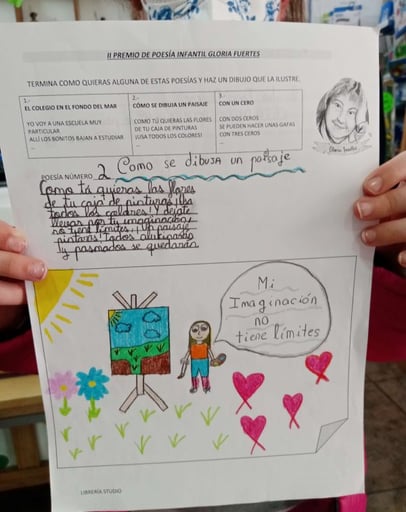 II PREMIO DE POESÍA INFANTIL GLORIA FUERTES
TERMINA COMO QUIERAS ALGUNA DE ESTAS POESÍAS Y HAZ UN DIBUJO QUE LA ILUSTRE.
1.-
EL COLEGIO EN EL FONDO DEL MAR
YO VOY A UNA ESCUELA MUY
PARTICULAR
ALLÍ LOS BONITOS BAJAN A ESTUDIAR
...
2.-
CÓMO SE DIBUJA UN PAISAJE
COMO TÚ QUIERAS LAS FLORES
DE TU CAJA DE PINTURAS
¡USA TODOS LOS COLORES!
...
3.-
CON UN CERO
CON DOS CEROS
SE PUEDEN HACER UNAS GAFAS
CON TRES CEROS
...
Gloria Fuertes
POESÍA NÚMERO 2 Cómo se dibuja un paisaje
Como tú quieras las flores
de tu caja de pinturas ¡Usa
todos los colores! Y déjate
llevar por tu imaginación
no tiene límites, ¡Un paisaje
pintarás! Todos alucinados
y pasmados se quedarán
Mi
Imaginación
no
tiene límites
LIBRERÍA STUDIO